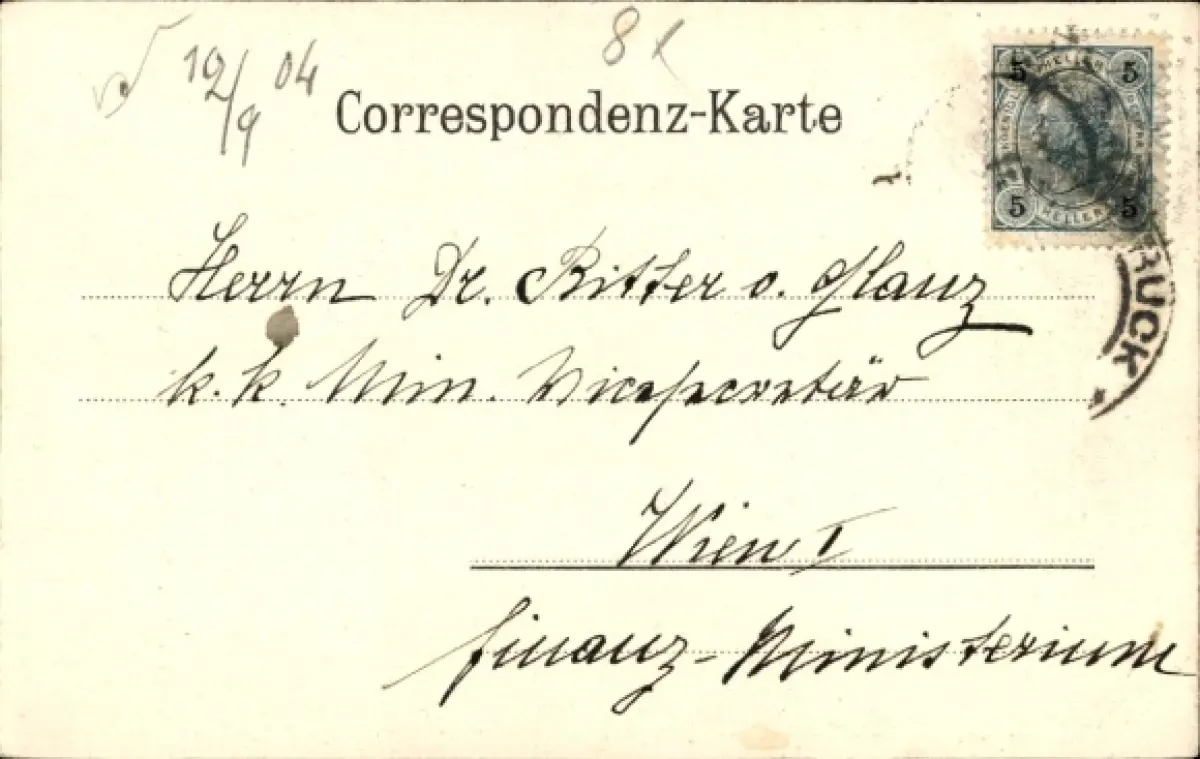 12/9 04
8
Correspondenz-Karte
5 HELLER 5
5 HELLER 5
RUCK
Herrn Dr. Ritter v. Glanz
k. k. Min. Vicesecretär
Wien I
Finanz-Ministerium